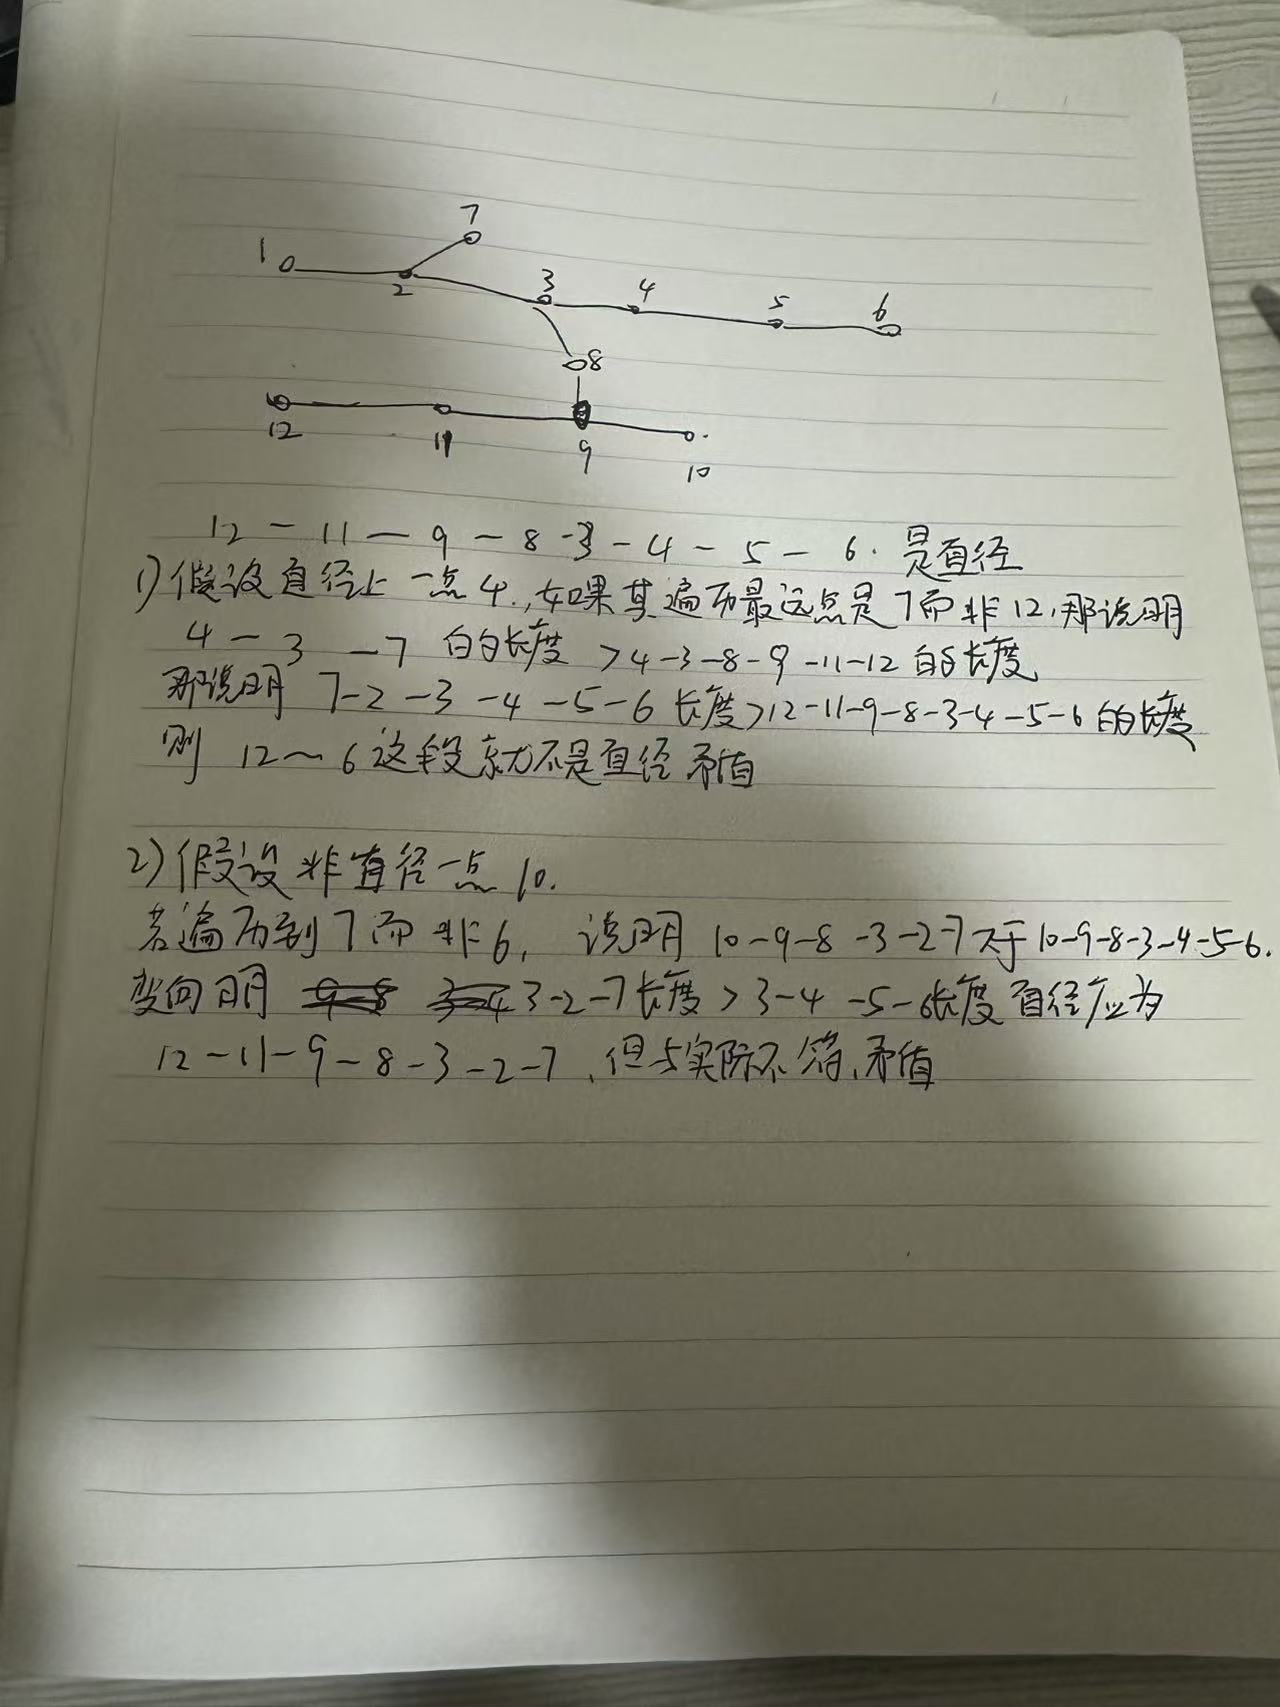 7
1
2
3
4
5
6
8
12
11
9
10
12 - 11 - 9 - 8 - 3 - 4 - 5 - 6. 是直径
1) 假设直径上一点4., 如果其遍历最远点是7而非12, 那说明
4 - 3 - 7 的长度 > 4-3-8-9-11-12 的长度
那说明 7-2-3-4-5-6 长度 > 12-11-9-8-3-4-5-6 的长度
则 12~6 这段就不是直径 矛盾
2) 假设非直径一点 10.
若遍历到7而非6, 说明 10-9-8-3-2-7 大于 10-9-8-3-4-5-6.
变向明 3-2-7长度 > 3-4-5-6长度 直径应为
12-11-9-8-3-2-7, 但与实际不符, 矛盾